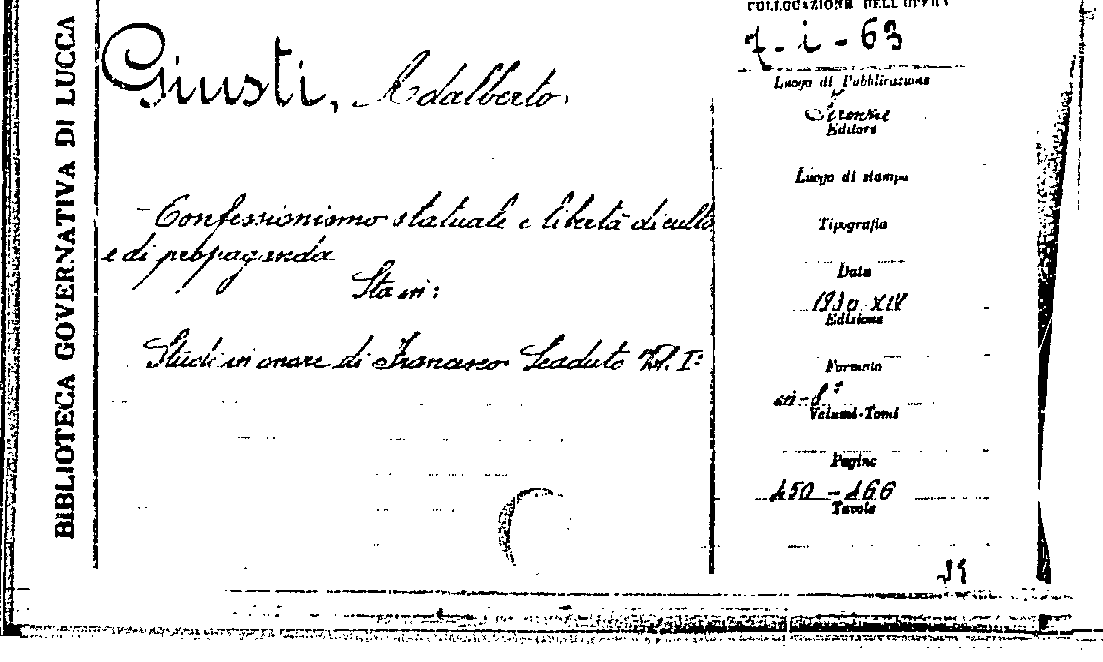 BIBLIOTECA GOVERNATIVA DI LUCCA
Giusti, Adalberto.
- Confessionismo statuale e libertà di culto
e di propaganda
Sta in:
Studi in onore di Francesco Scaduto Vol. I:
COLLOCAZIONE DELL'OPERA
7 - i - 63
Luogo di Pubblicazione
Firenze
Editore
Luogo di stampa
Tipografia
Data
Edizione
Formato
in-8º
Volumi-Tomi
Pagine
450 - 466
Tavole